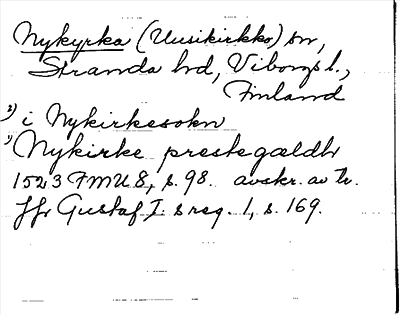 Nykyrka (Uusikirkko) sn,
Stranda hd, Viborgs l.,
Finland
2) i Nykirkesokn
1) Nykirke prestegældh
1523 FMU 8, s. 98. avskr. av tr.
Jfr Gustaf I:s reg. 1, s. 169.